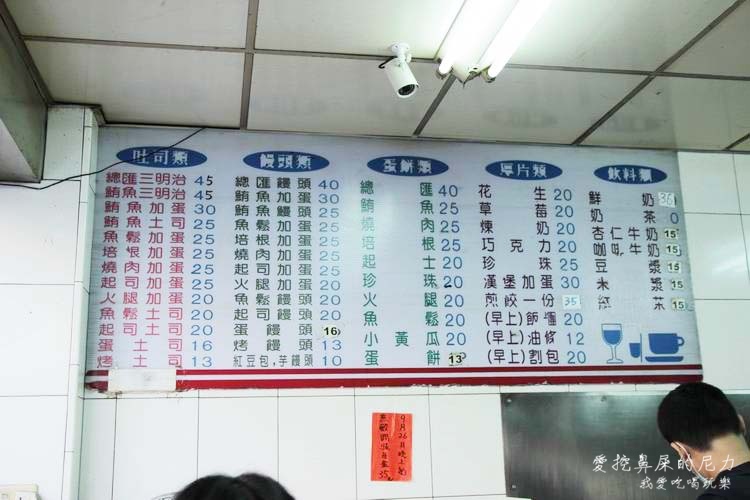 吐司類
總匯三明治 45
鮪魚三明治 45
鮪魚加蛋 30
鮪魚土司 25
魚鬆加蛋 25
培根加蛋 25
燒肉加蛋 25
起司加蛋 25
火腿加蛋 20
魚鬆土司 20
起司土司 20
蛋土司 16
烤土司 13
饅頭類
總匯饅頭 40
鮪魚加蛋 30
鮪魚饅頭 25
魚鬆加蛋 25
培根加蛋 25
燒肉加蛋 25
起司加蛋 25
火腿加蛋 20
魚鬆饅頭 20
起司饅頭 20
蛋饅頭 16
烤饅頭 13
紅豆包,芋饅頭 10
蛋餅類
總匯 40
鮪魚 25
燒肉 25
培根 25
起士 20
珍珠 20
火腿 20
魚鬆 20
小黃瓜 20
蛋餅 13
厚片類
花生 20
草莓 20
煉奶 20
巧克力 20
珍珠 25
漢堡加蛋 30
煎餃一份 35
(早上)飯糰 20
(早上)油條 12
(早上)割包 20
飲料類
鮮奶 36
奶茶 0
杏仁牛奶 15
咖啡牛奶 15
豆漿 15
米漿 15
紅茶 15
愛挖鼻屎的尼力
我愛吃喝玩樂